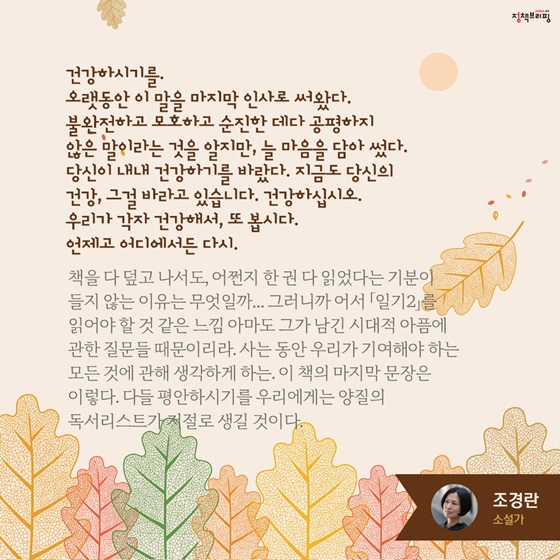 정책브리핑
건강하시기를.
오랫동안 이 말을 마지막 인사로 써왔다.
불완전하고 모호하고 순진한 데다 공평하지
않은 말이라는 것을 알지만, 늘 마음을 담아 썼다.
당신이 내내 건강하기를 바랐다. 지금도 당신의
건강, 그걸 바라고 있습니다. 건강하십시오.
우리가 각자 건강해서, 또 봅시다.
언제고 어디에서든 다시.
책을 다 덮고 나서도, 어쩐지 한 권 다 읽었다는 기분이
들지 않는 이유는 무엇일까... 그러니까 어서 「일기2」를
읽어야 할 것 같은 느낌 아마도 그가 남긴 시대적 아픔에
관한 질문들 때문이리라. 사는 동안 우리가 기여해야 하는
모든 것에 관해 생각하게 하는. 이 책의 마지막 문장은
이렇다. 다들 평안하시기를 우리에게는 양질의
독서리스트가 저절로 생길 것이다.
조경란
소설가